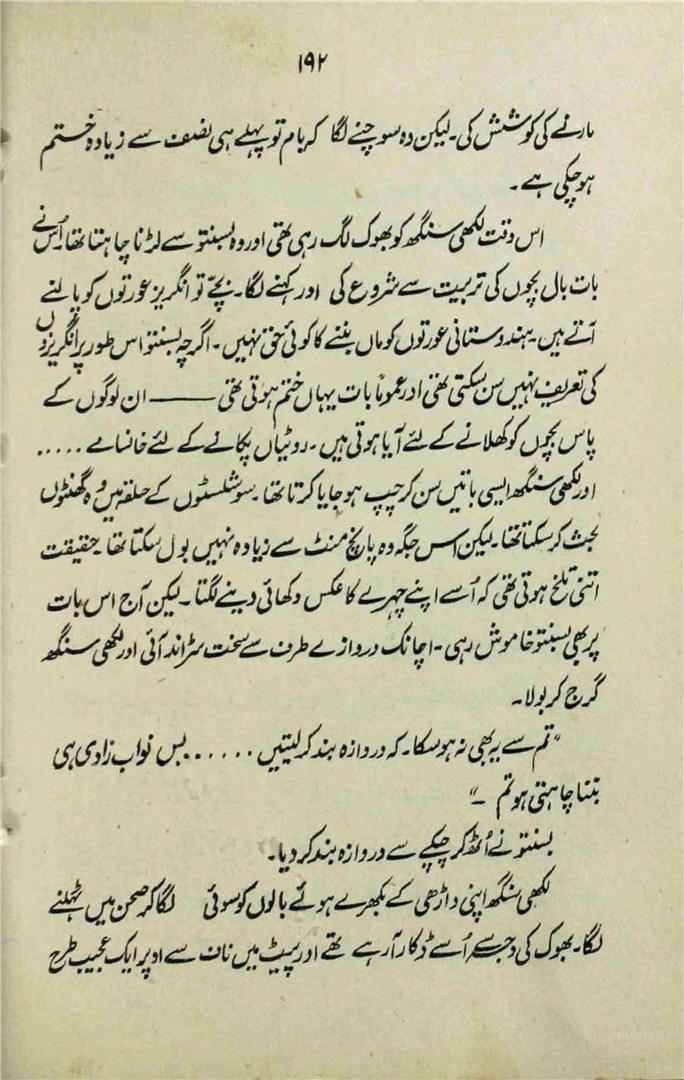 ۱۹۲
مارنے کی کوشش کی۔ لیکن وہ سوچنے لگا کر بام تو پہلے ہی نصف سے زیادہ ختم
ہو چکی ہے۔
اس وقت لکھی سنگھ کو بھوک لگ رہی تھی اور وہ بسنتو سے لڑنا چاہتا تھا۔ اُس نے
بات بال بچوں کی تربیت سے شروع کی اور کہنے لگا۔ بچّے تو انگریز عورتوں کو پالنے
آتے ہیں۔ ہندوستانی عورتوں کو ماں بننے کا کوئی حق نہیں۔ اگرچہ بسنتو اس طور پر انگریزوں
کی تعریف نہیں سن سکتی تھی اور عموماً بات یہاں ختم ہوتی تھی ——— ان لوگوں کے
پاس بچوں کو کھلانے کے لئے آیا ہوتی ہیں۔ روٹیاں پکانے کے لئے خانسامے .....
اور لکھی سنگھ ایسی باتیں سن کر چپ ہو جایا کرتا تھا۔ سوشلسٹوں کے حلقہ میں وہ گھنٹوں
بحث کر سکتا تھا۔ لیکن اس جگہ وہ پانچ منٹ سے زیادہ نہیں بول سکتا تھا۔ حقیقت
اتنی تلخ ہوتی تھی کہ اُسے اپنے چہرے کا عکس دکھائی دینے لگتا۔ لیکن آج اس بات
پر بھی بسنتو خاموش رہی۔ اچانک دروازے طرف سے سخت سڑاند آئی اور لکھی سنگھ
گرج کر بولا۔
"تم سے یہ بھی نہ ہو سکا۔ کہ دروازہ بند کر لیتیں ...... بس نواب زادی ہی
بننا چاہتی ہو تم ۔"
بسنتو نے اُٹھ کر چپکے سے دروازہ بند کر دیا۔
لکھی سنگھ اپنی داڑھی کے بکھرے ہوئے بالوں کو سوئی لگا کر صحن میں ٹہلنے
لگا۔ بھوک کی وجہ سے اُسے ڈکار آ رہے تھے اور پیٹ میں ناف سے اوپر ایک عجیب طرح